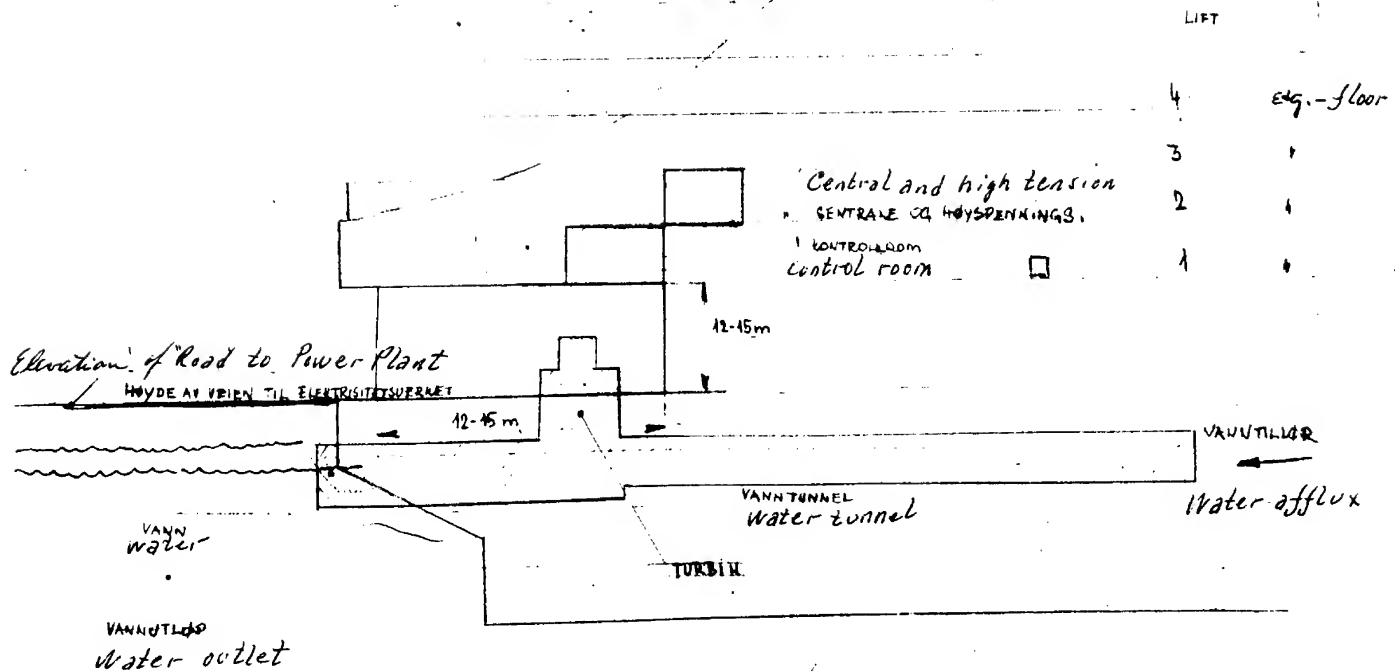 LIFT
4 etg.-floor
3 "
Central and high tension
SENTRALE OG HØYSPENNINGS.
2 "
KONTROLLROOM
Control room
1 "
12-15m
Elevation of Road to Power Plant
HØYDE AV VEIEN TIL ELEKTRISITETSVERKET
12-15 m
VANNTILLØP
Water afflux
VANNTUNNEL
Water tunnel
VANN
Water
TURBIN
VANNUTLØP
Water outlet